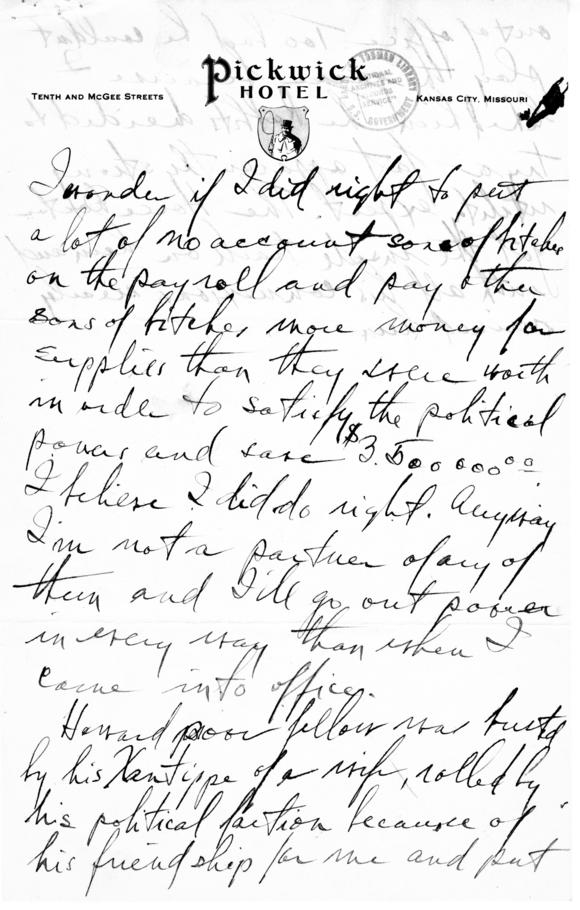 Pickwick
HOTEL
TENTH AND MCGEE STREETS
KANSAS CITY, MISSOURI
I wonder if I did right to put
a lot of no account sons of bitches
on the payroll and pay other
sons of bitches more money for
supplies than they were worth
in order to satisfy the political
powers and save $3,500,000.00.
I believe I did do right. Anyway
I'm not a partner of any of
them and I'll go out poorer
in every way than when I
came into office.
Howard poor fellow was busted
by his Xantippe of a wife, rolled by
his political faction because of
his friendship for me and put